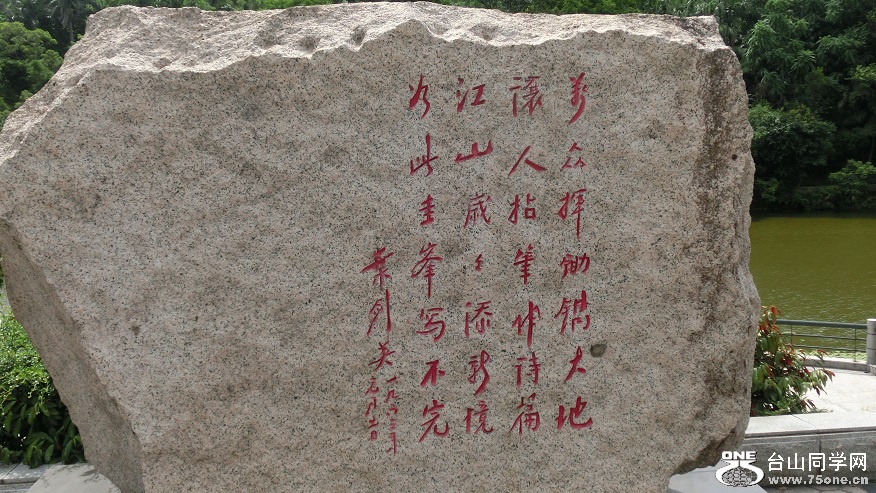 万众挥锄镌大地
让人拈笔作诗篇
江山岁々添新境
为此圭峰写不完
叶剑英
一九六三年
元月二日
ONE
台山同学网
www.75one.cn